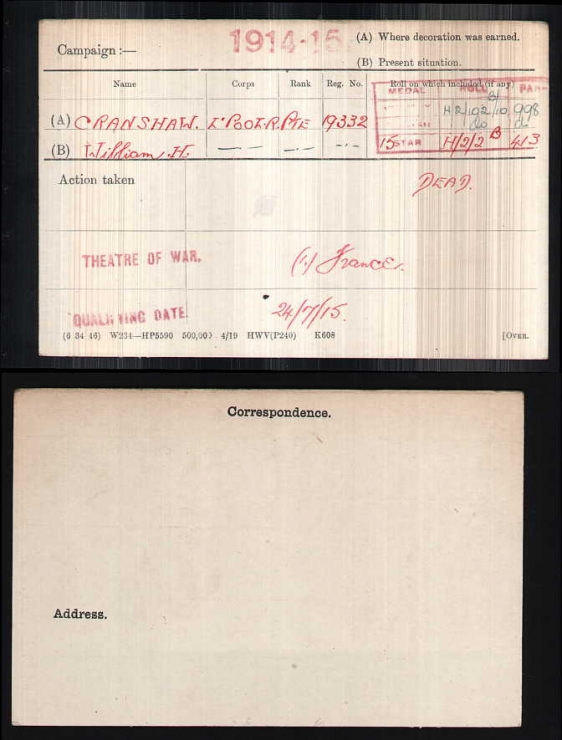 1914-15
Campaign :—
(A) Where decoration was earned.
(B) Present situation.
Name Corps Rank Reg. No. Roll on which included (if any)
MEDAL ROLL PAGE
(A) CRANSHAW. L'POOL.R. PTE 19332 H2/102 B10 998
do do
(B) William. H. — — —·— —·— 15 STAR H/2/2 B 413
Action taken
DEAD.
THEATRE OF WAR. (1) France.
QUALIFYING DATE. 24/7/15.
(6 34 46) W234—HP5590 500,000 4/19 HWV(P240) K608 [OVER.
Correspondence.
Address.